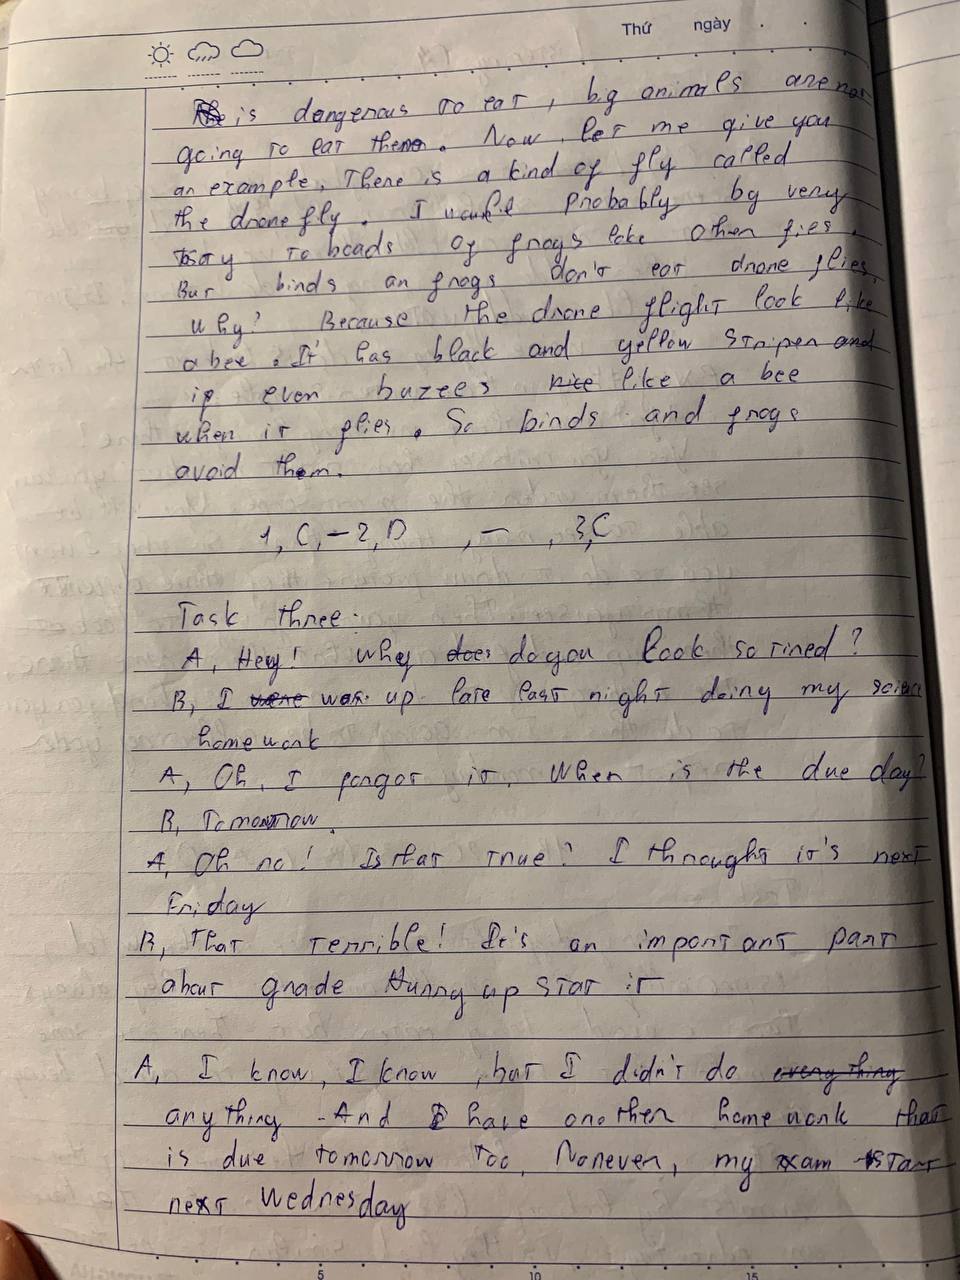 Thứ ngày . .
is dangerous to eat, big animals are not
going to eat them. Now, let me give you
an example. There is a kind of fly called
the drone fly. I would probably by very
tasty to beads of frogs like other fies.
But binds an frogs don't eat drone flies,
why? Because the drone flight look like
a bee. It' has black and yellow stripen and
if even buzees nice like a bee
when it flies. So binds and frogs
avoid them.
1, C, - 2, D , - , 3, C
Task three:
A, Hey! why does do you look so tined?
B, I were was up late last night doing my science
homework
A, Oh, I forgot it. When is the due day?
B, Tomorrow.
A, Oh no! Is that true? I throught it's next
Friday
B, That terrible! It's an important part
about grade Hurry up stat it
A, I know, I know, but I didn't do every thing
any thing - And I have another homework that
is due tomorrow too. Noneven, my exam start
next Wednesday
5 10 15